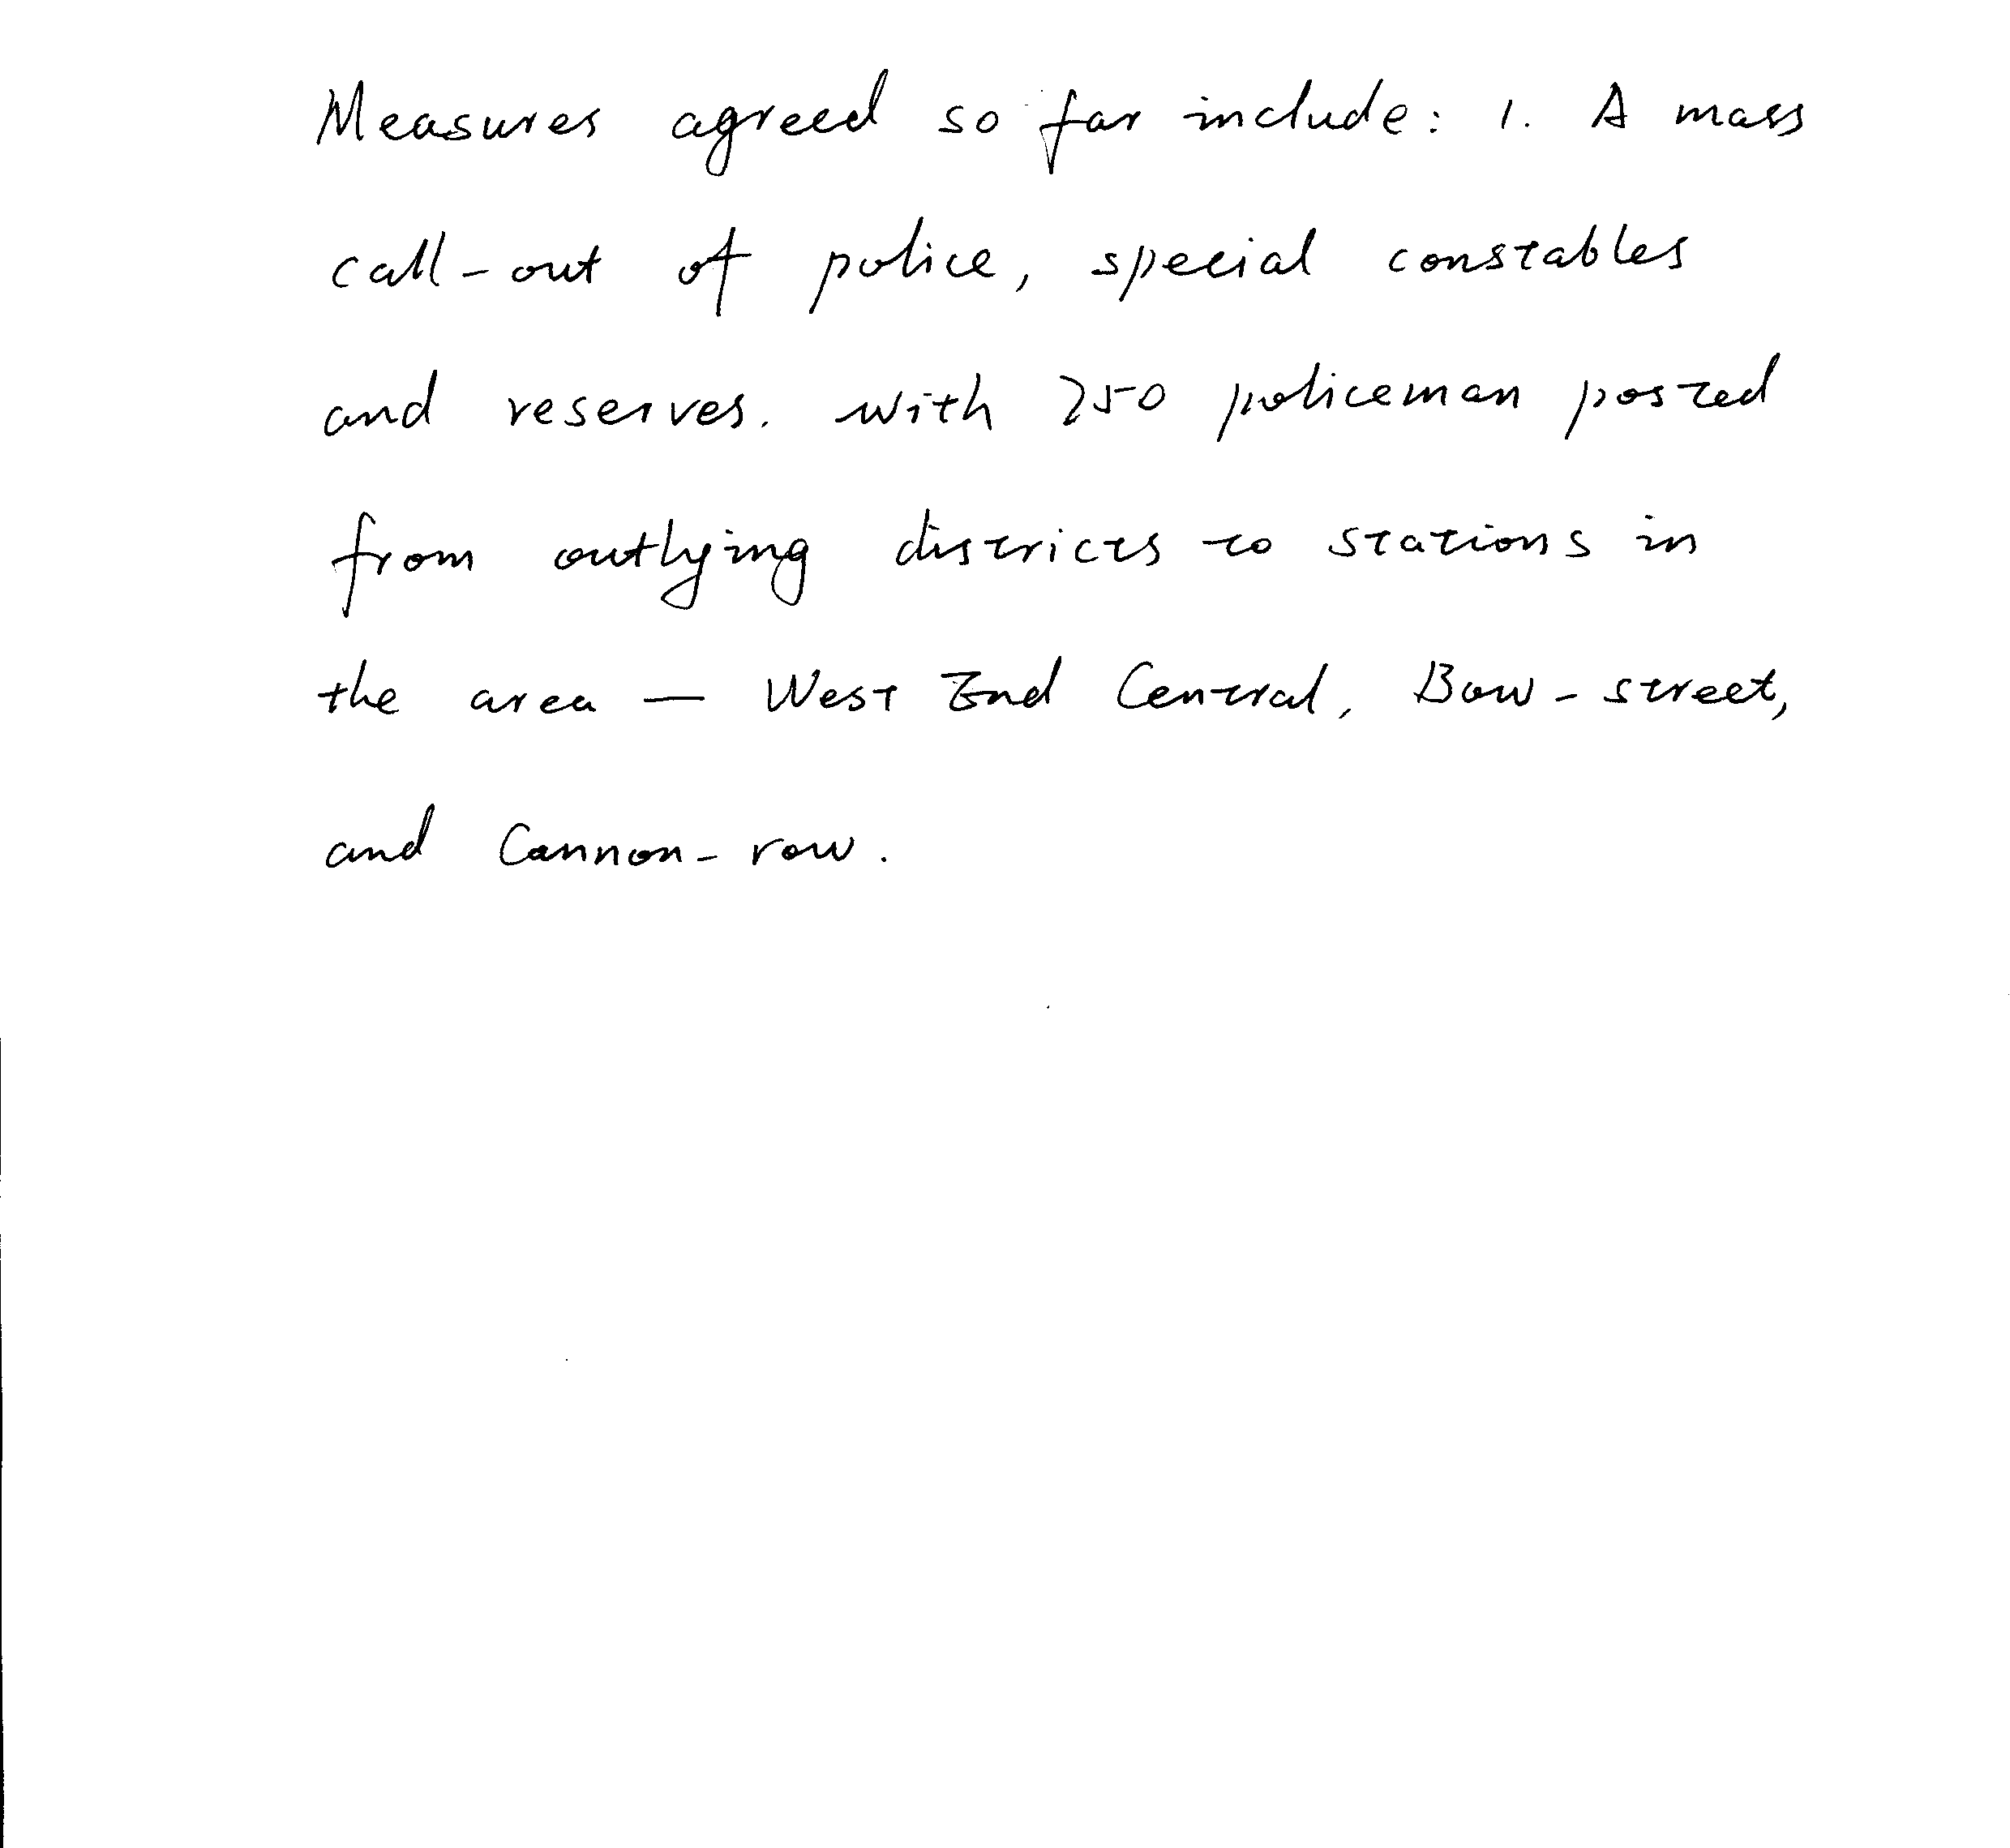 Measures agreed so far include: 1. A mass
call-out of police, special constables
and reserves. with 250 policeman posted
from outlying districts to stations in
the area — West End Central, Bow-street,
and Cannon-row.